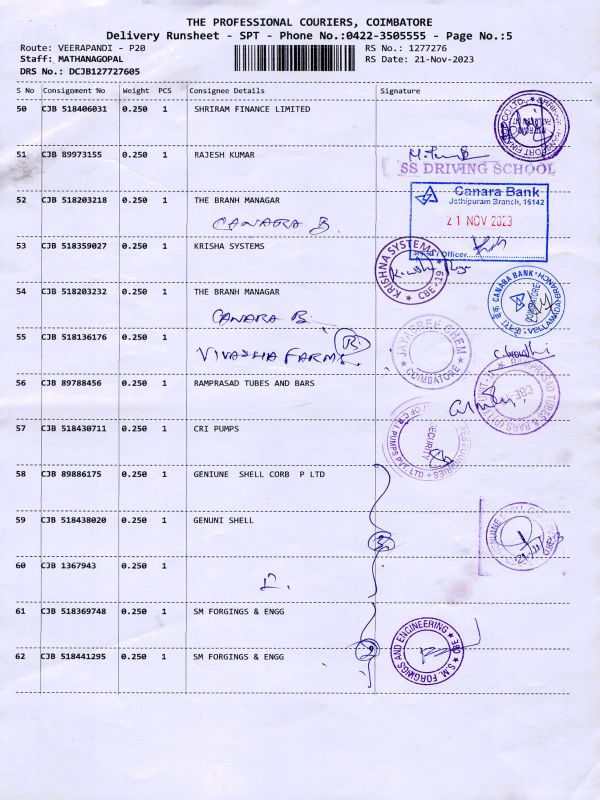 THE PROFESSIONAL COURIERS, COIMBATORE
Delivery Runsheet - SPT - Phone No.:0422-3505555 - Page No.:5
Route: VEERAPANDI - P20 RS No.: 1277276
Staff: MATHANAGOPAL RS Date: 21-Nov-2023
DRS No.: DCJB127727605
S No Consignment No Weight PCS Consignee Details Signature
50 CJB 518406031 0.250 1 SHRIRAM FINANCE LIMITED
51 CJB 89973155 0.250 1 RAJESH KUMAR
SS DRIVING SCHOOL
52 CJB 518203218 0.250 1 THE BRANH MANAGAR
CANARA B.
Canara Bank
Jothipuram Branch, 16142
21 NOV 2023
Officer
53 CJB 518359027 0.250 1 KRISHA SYSTEMS
KRISHNA SYSTEMS
CBE-19
54 CJB 518203232 0.250 1 THE BRANH MANAGAR
CANARA B.
CANARA BANK
COIMBATORE
55 CJB 518136176 0.250 1
VIVASHA FARMS.
R.
JAYASREE CHEM
COIMBATORE
56 CJB 89788456 0.250 1 RAMPRASAD TUBES AND BARS
RAMPRASAD TUBES & BARS (P) LTD
CBE
57 CJB 518430711 0.250 1 CRI PUMPS
C.R.I. PUMPS PVT. LTD
SECURITY
58 CJB 89886175 0.250 1 GENIUNE SHELL CORB P LTD
59 CJB 518438020 0.250 1 GENUNI SHELL
GENUINE
60 CJB 1367943 0.250 1
61 CJB 518369748 0.250 1 SM FORGINGS & ENGG
S.M. FORGINGS AND ENGINEERING
62 CJB 518441295 0.250 1 SM FORGINGS & ENGG